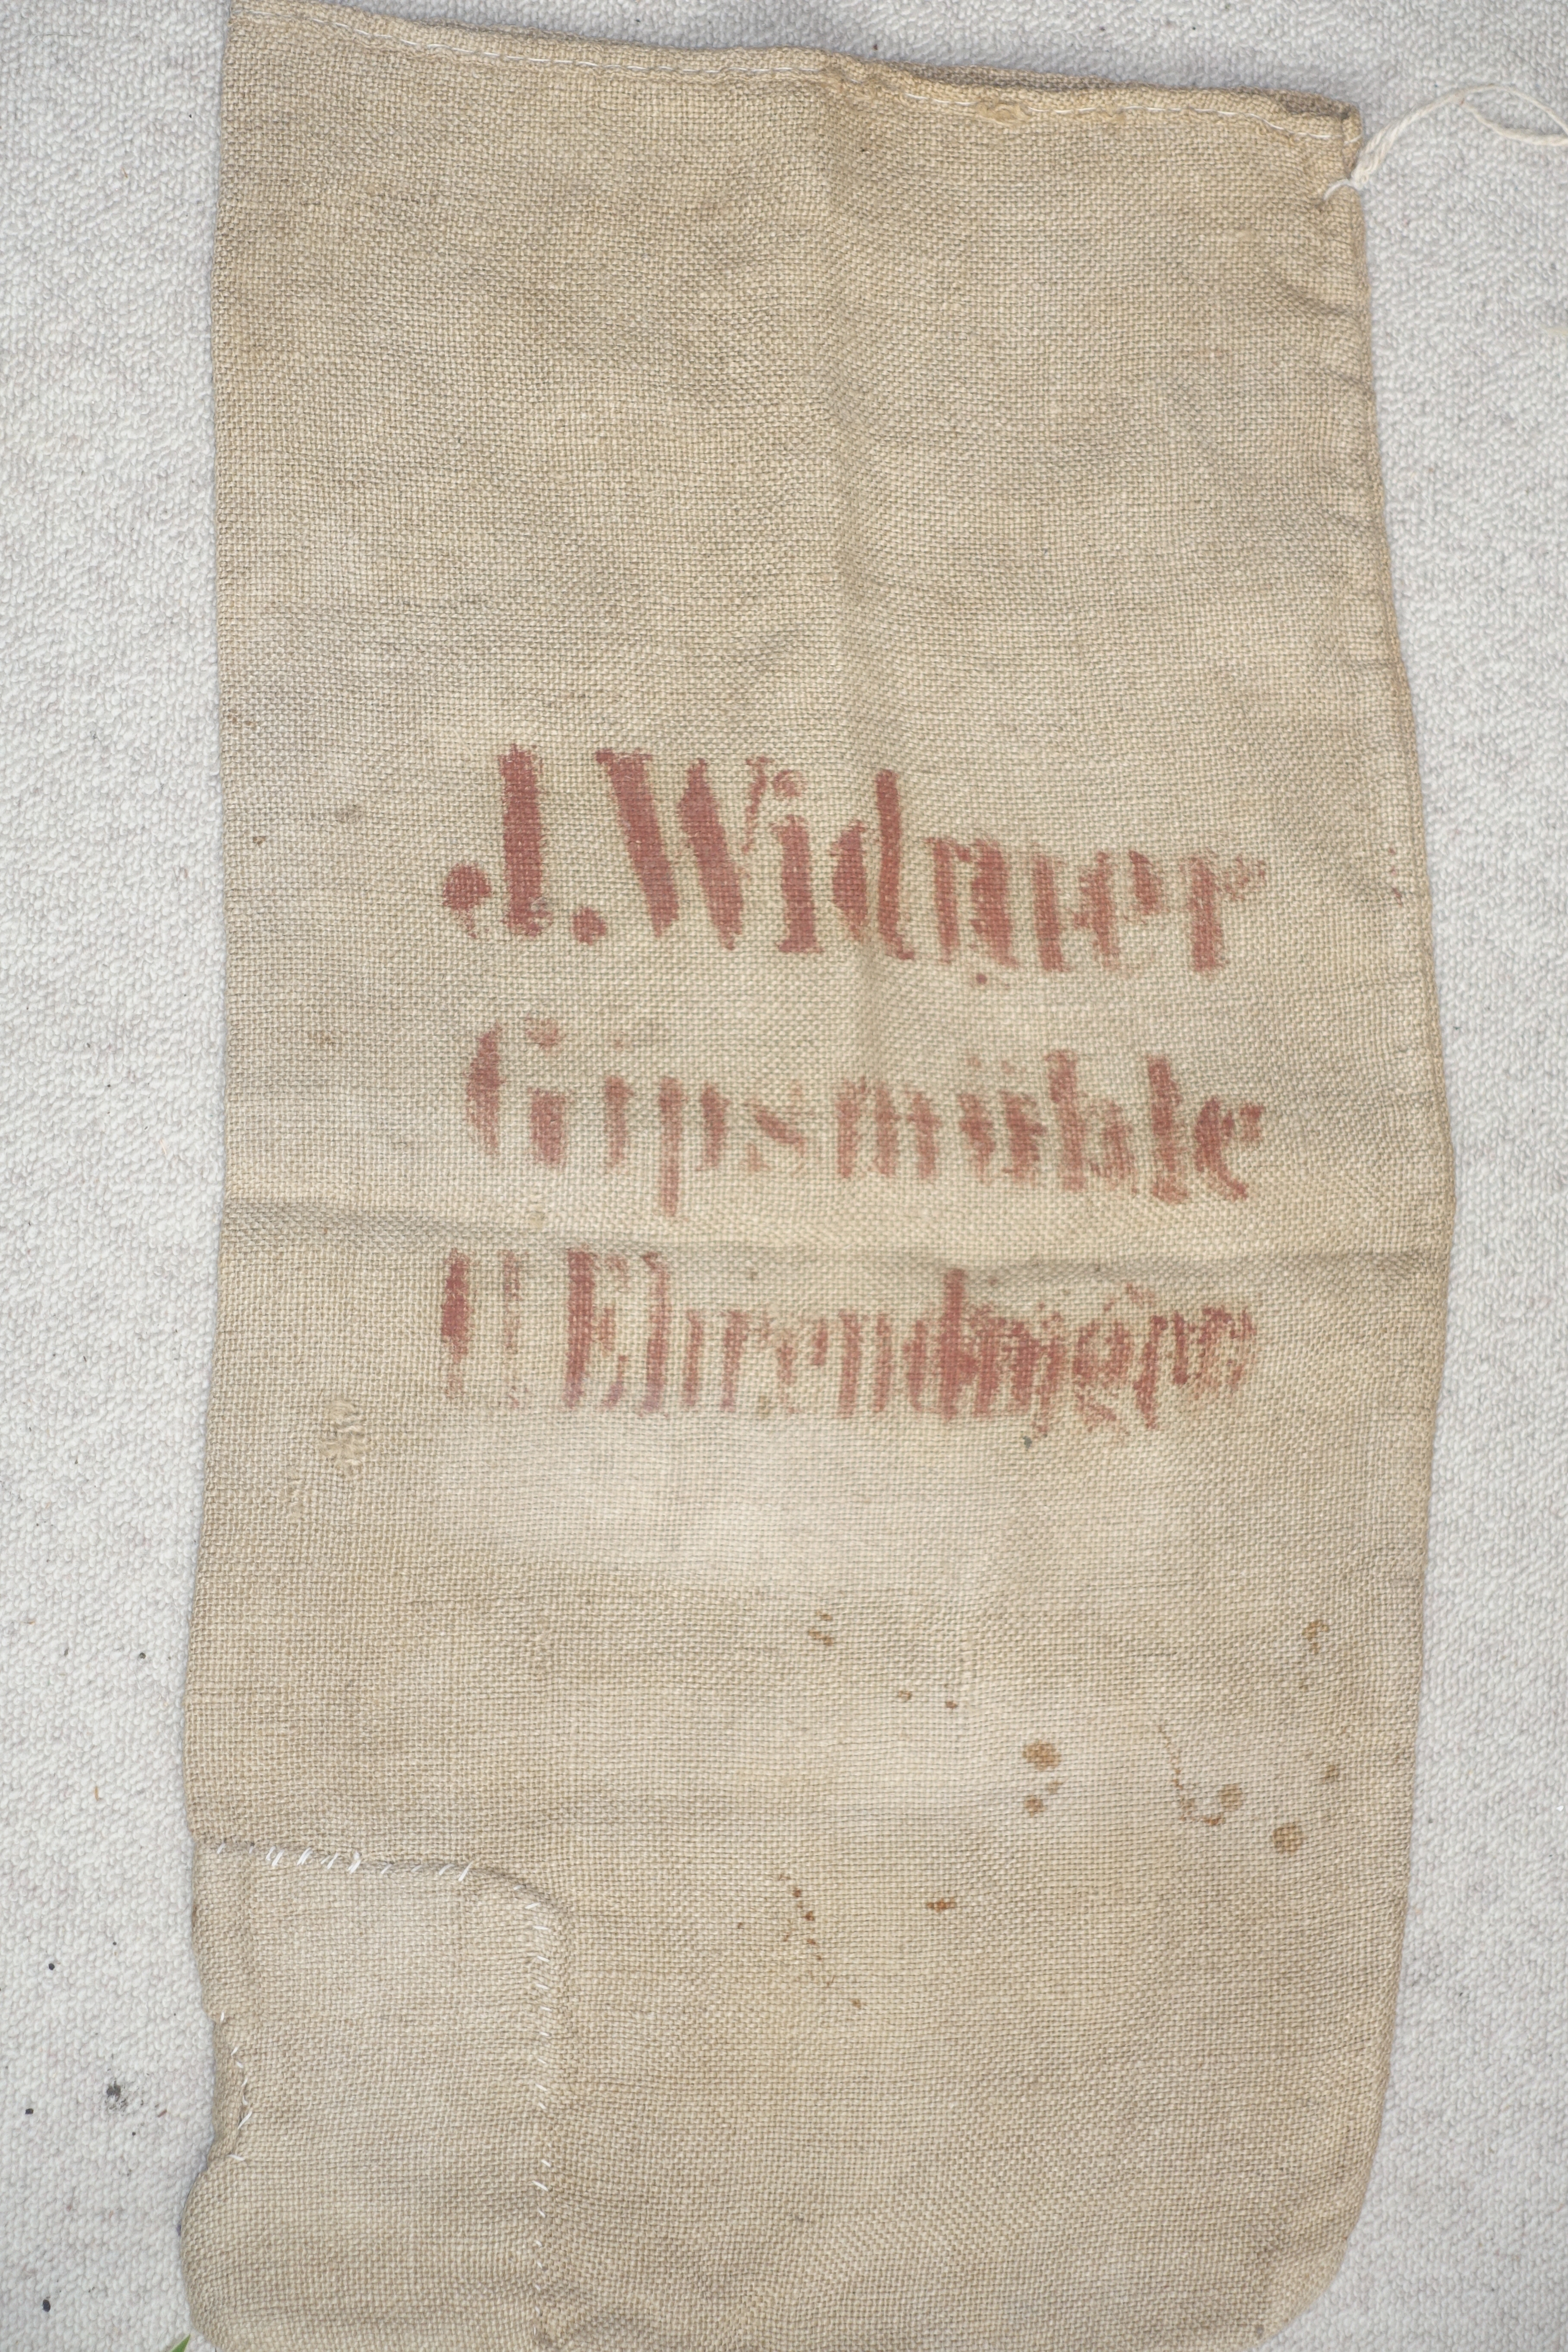 J. Widmer
Gipsmühle
U Ehrendingen